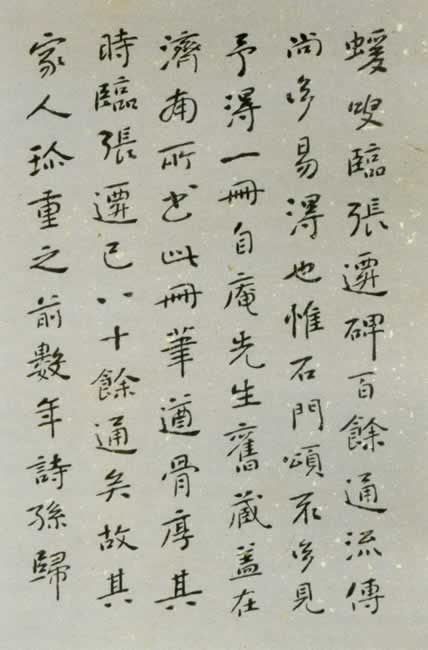 蝯叟臨張遷碑百餘通流傳
尚多易得也惟石門頌不多見
予得一冊自庵先生舊藏蓋在
濟南所書此冊筆遒骨厚其
時臨張遷已八十餘通矣故其
家人珎重之前數年詩孫歸